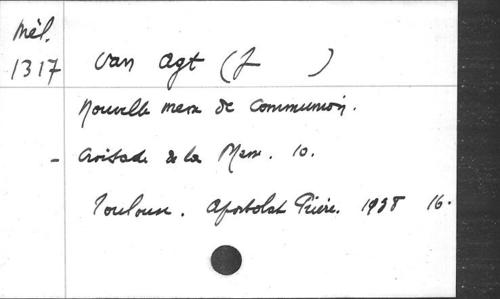 Mél.
1317 Van Agt (J )
Nouvelle messe de communion.
- Croisade de la Messe. 10.
Toulouse. Apostolat Prière. 1938 16.